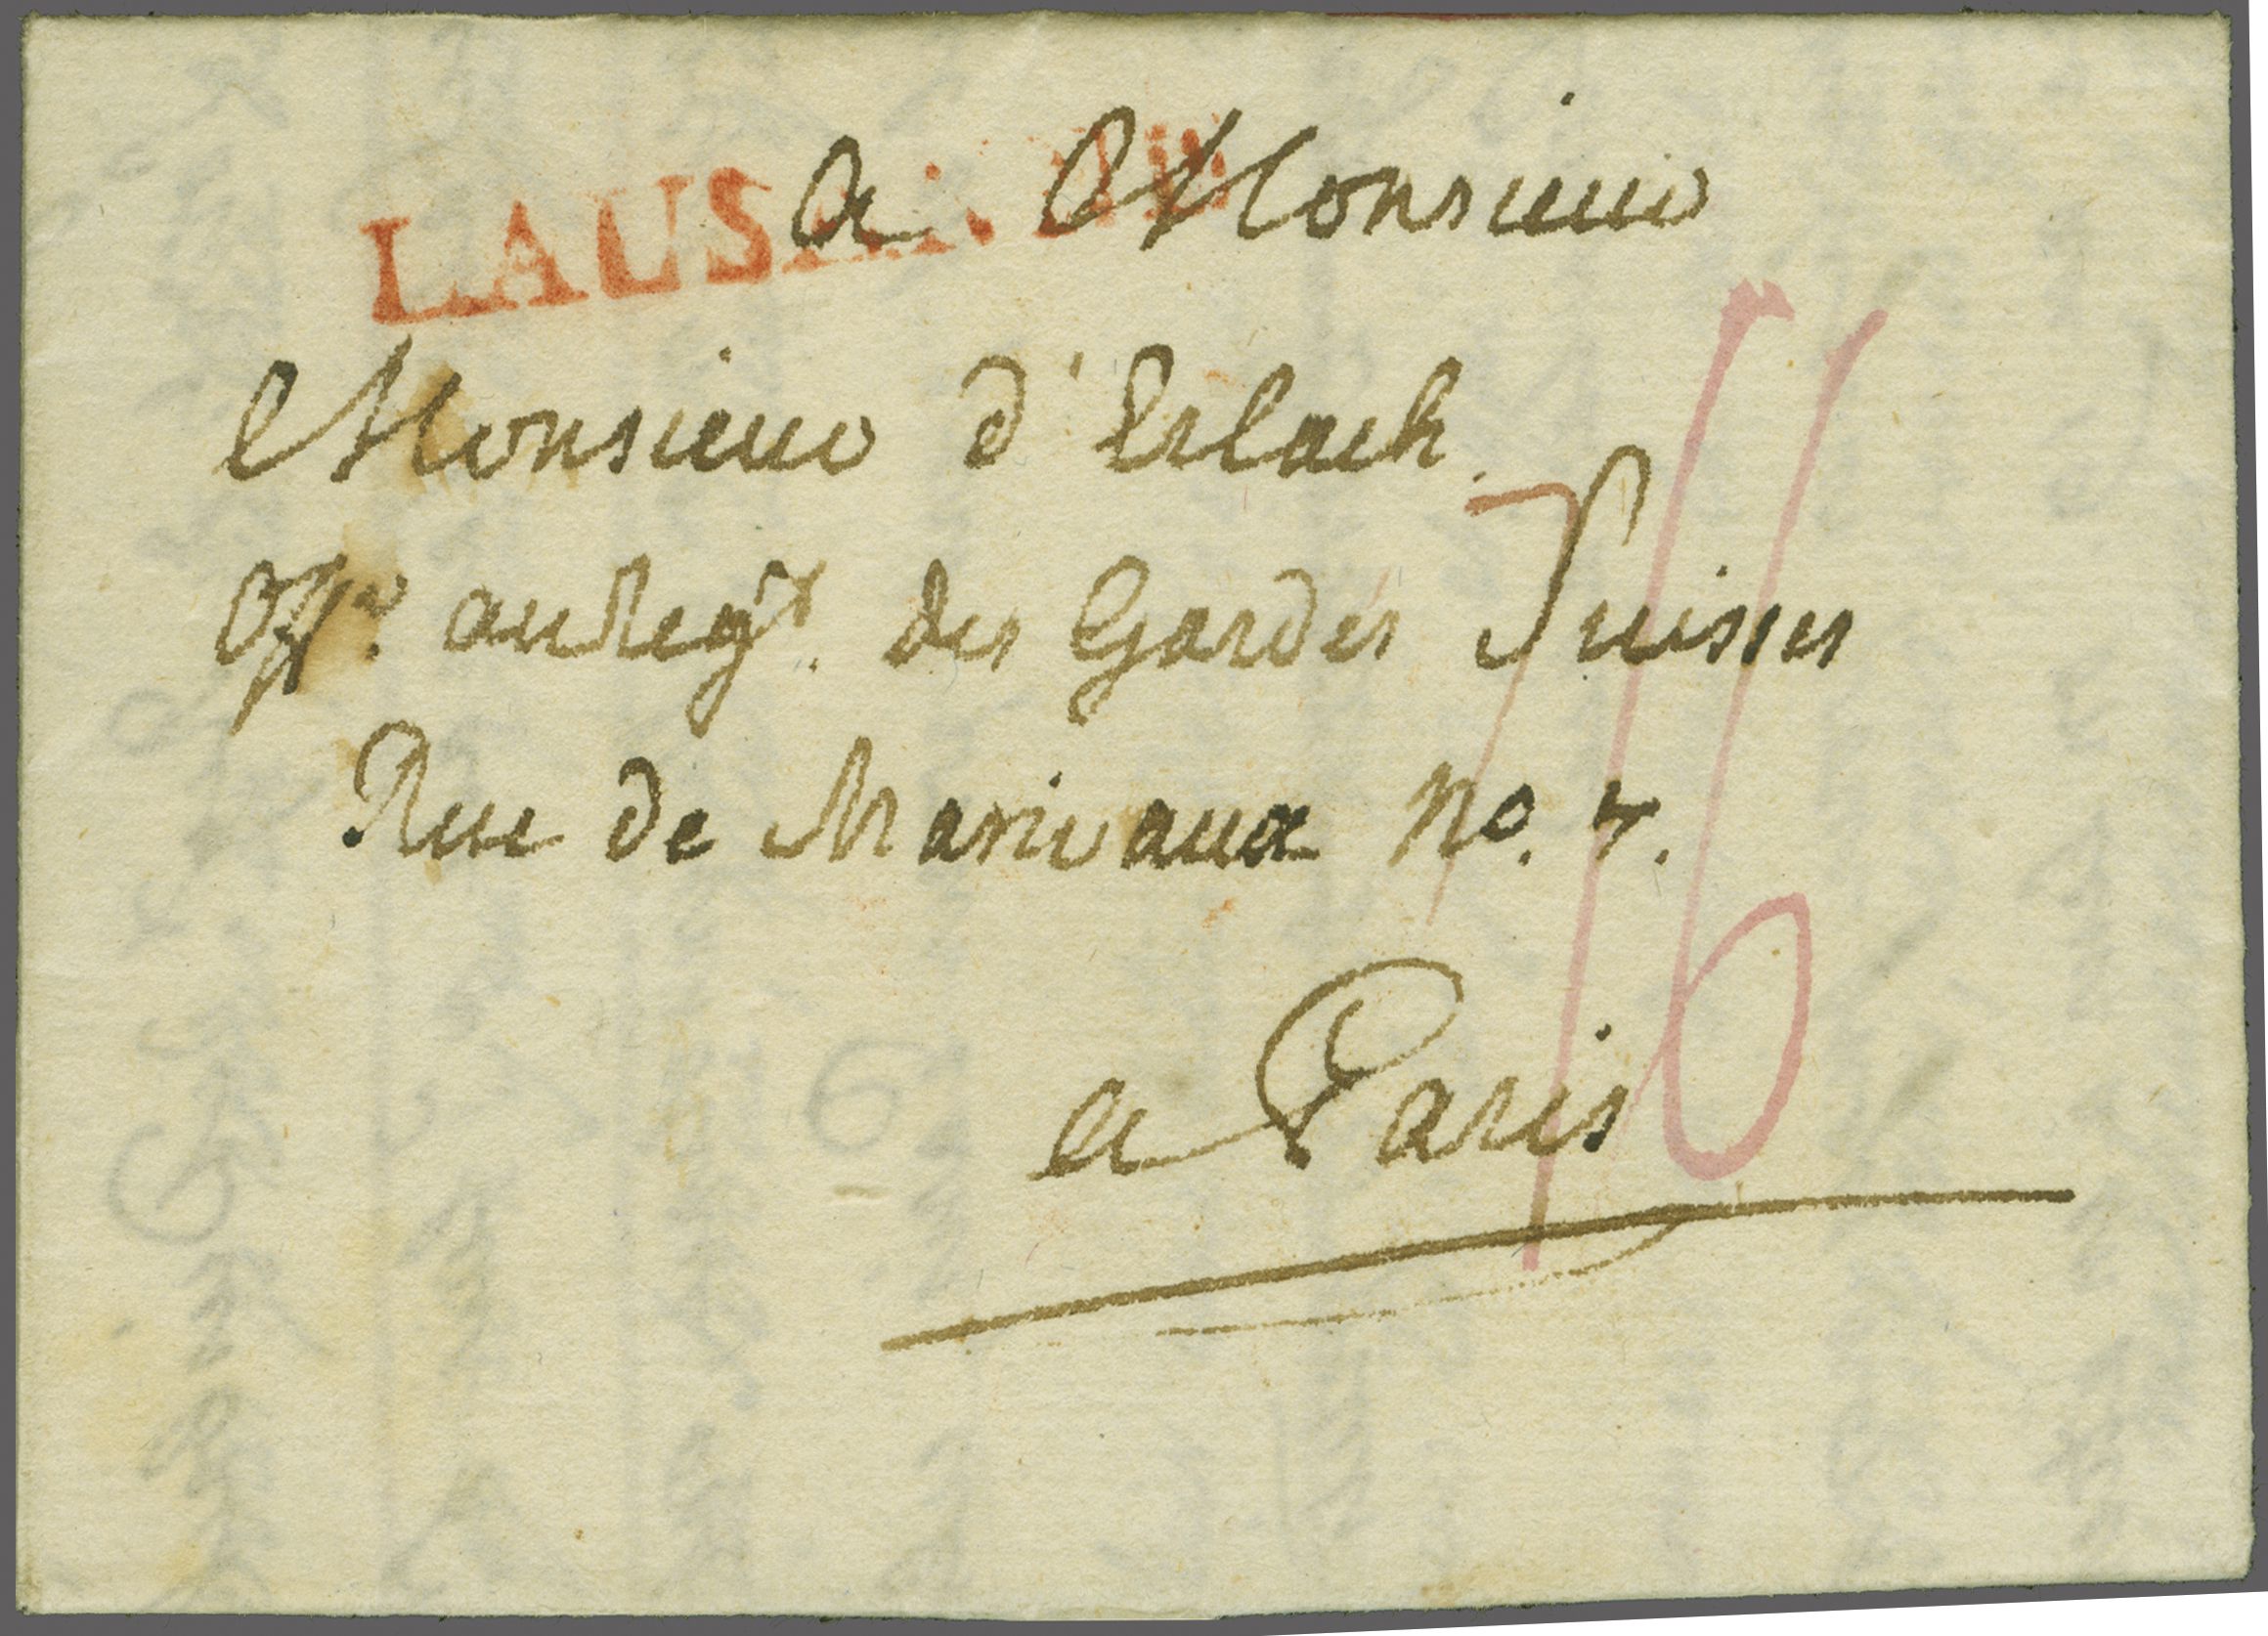 LAUSANNE
a Monsieur
Monsieur d'Erlach
Offr. au Regt. des Gardes Suisses
Rue de Marivaux No. 7.
a Paris